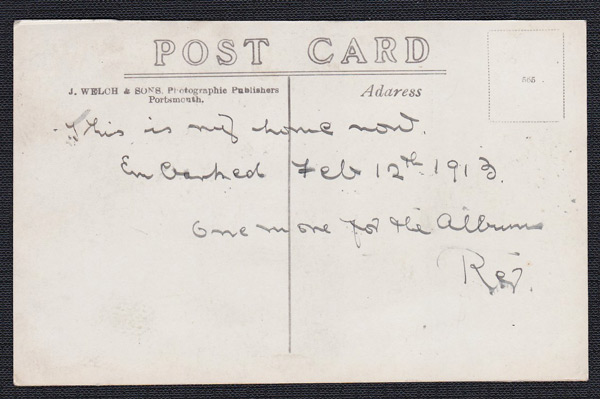 POST CARD
J. WELCH & SONS, Photographic Publishers
Portsmouth.
Address
565
This is my home now.
Embarked Feb 12th 1913.
One more for the Album
Reg.